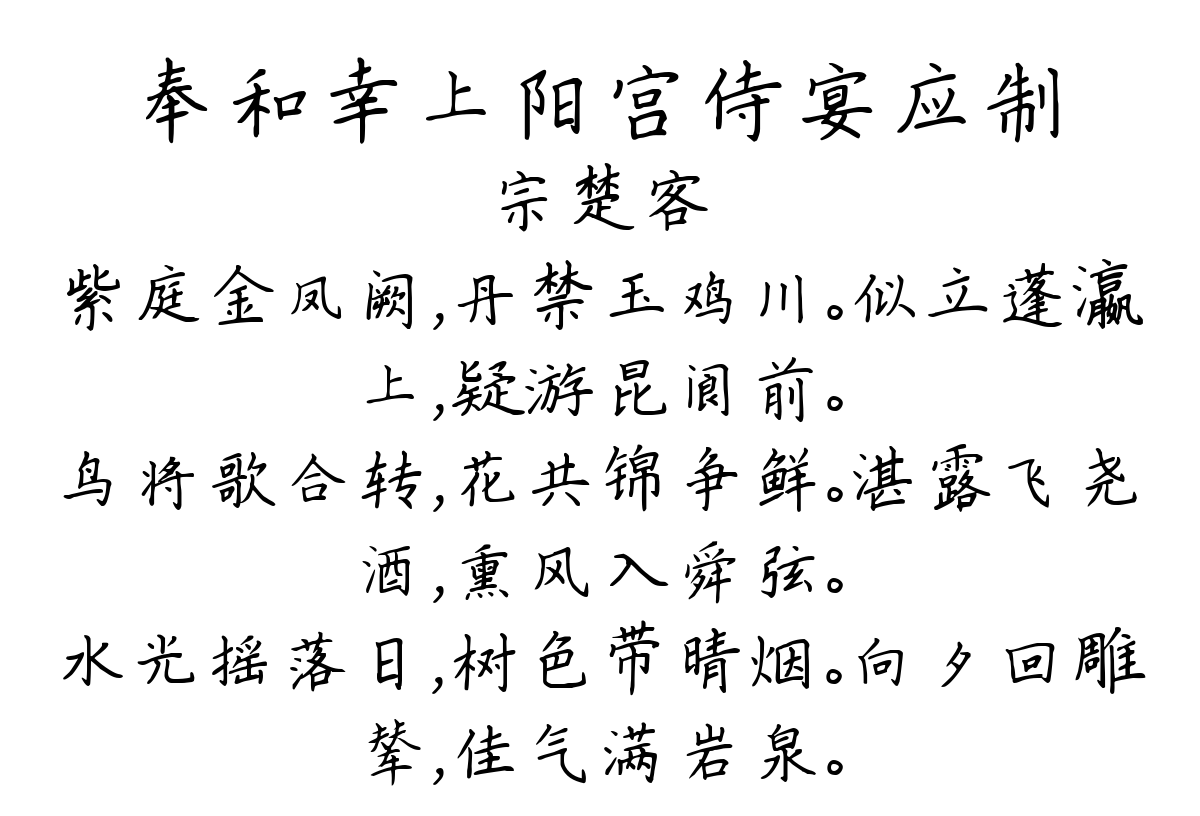 奉和幸上阳宫侍宴应制
宗楚客
紫庭金凤阙,丹禁玉鸡川。似立蓬瀛
上,疑游昆阆前。
鸟将歌合转,花共锦争鲜。湛露飞尧
酒,熏风入舜弦。
水光摇落日,树色带晴烟。向夕回雕
辇,佳气满岩泉。